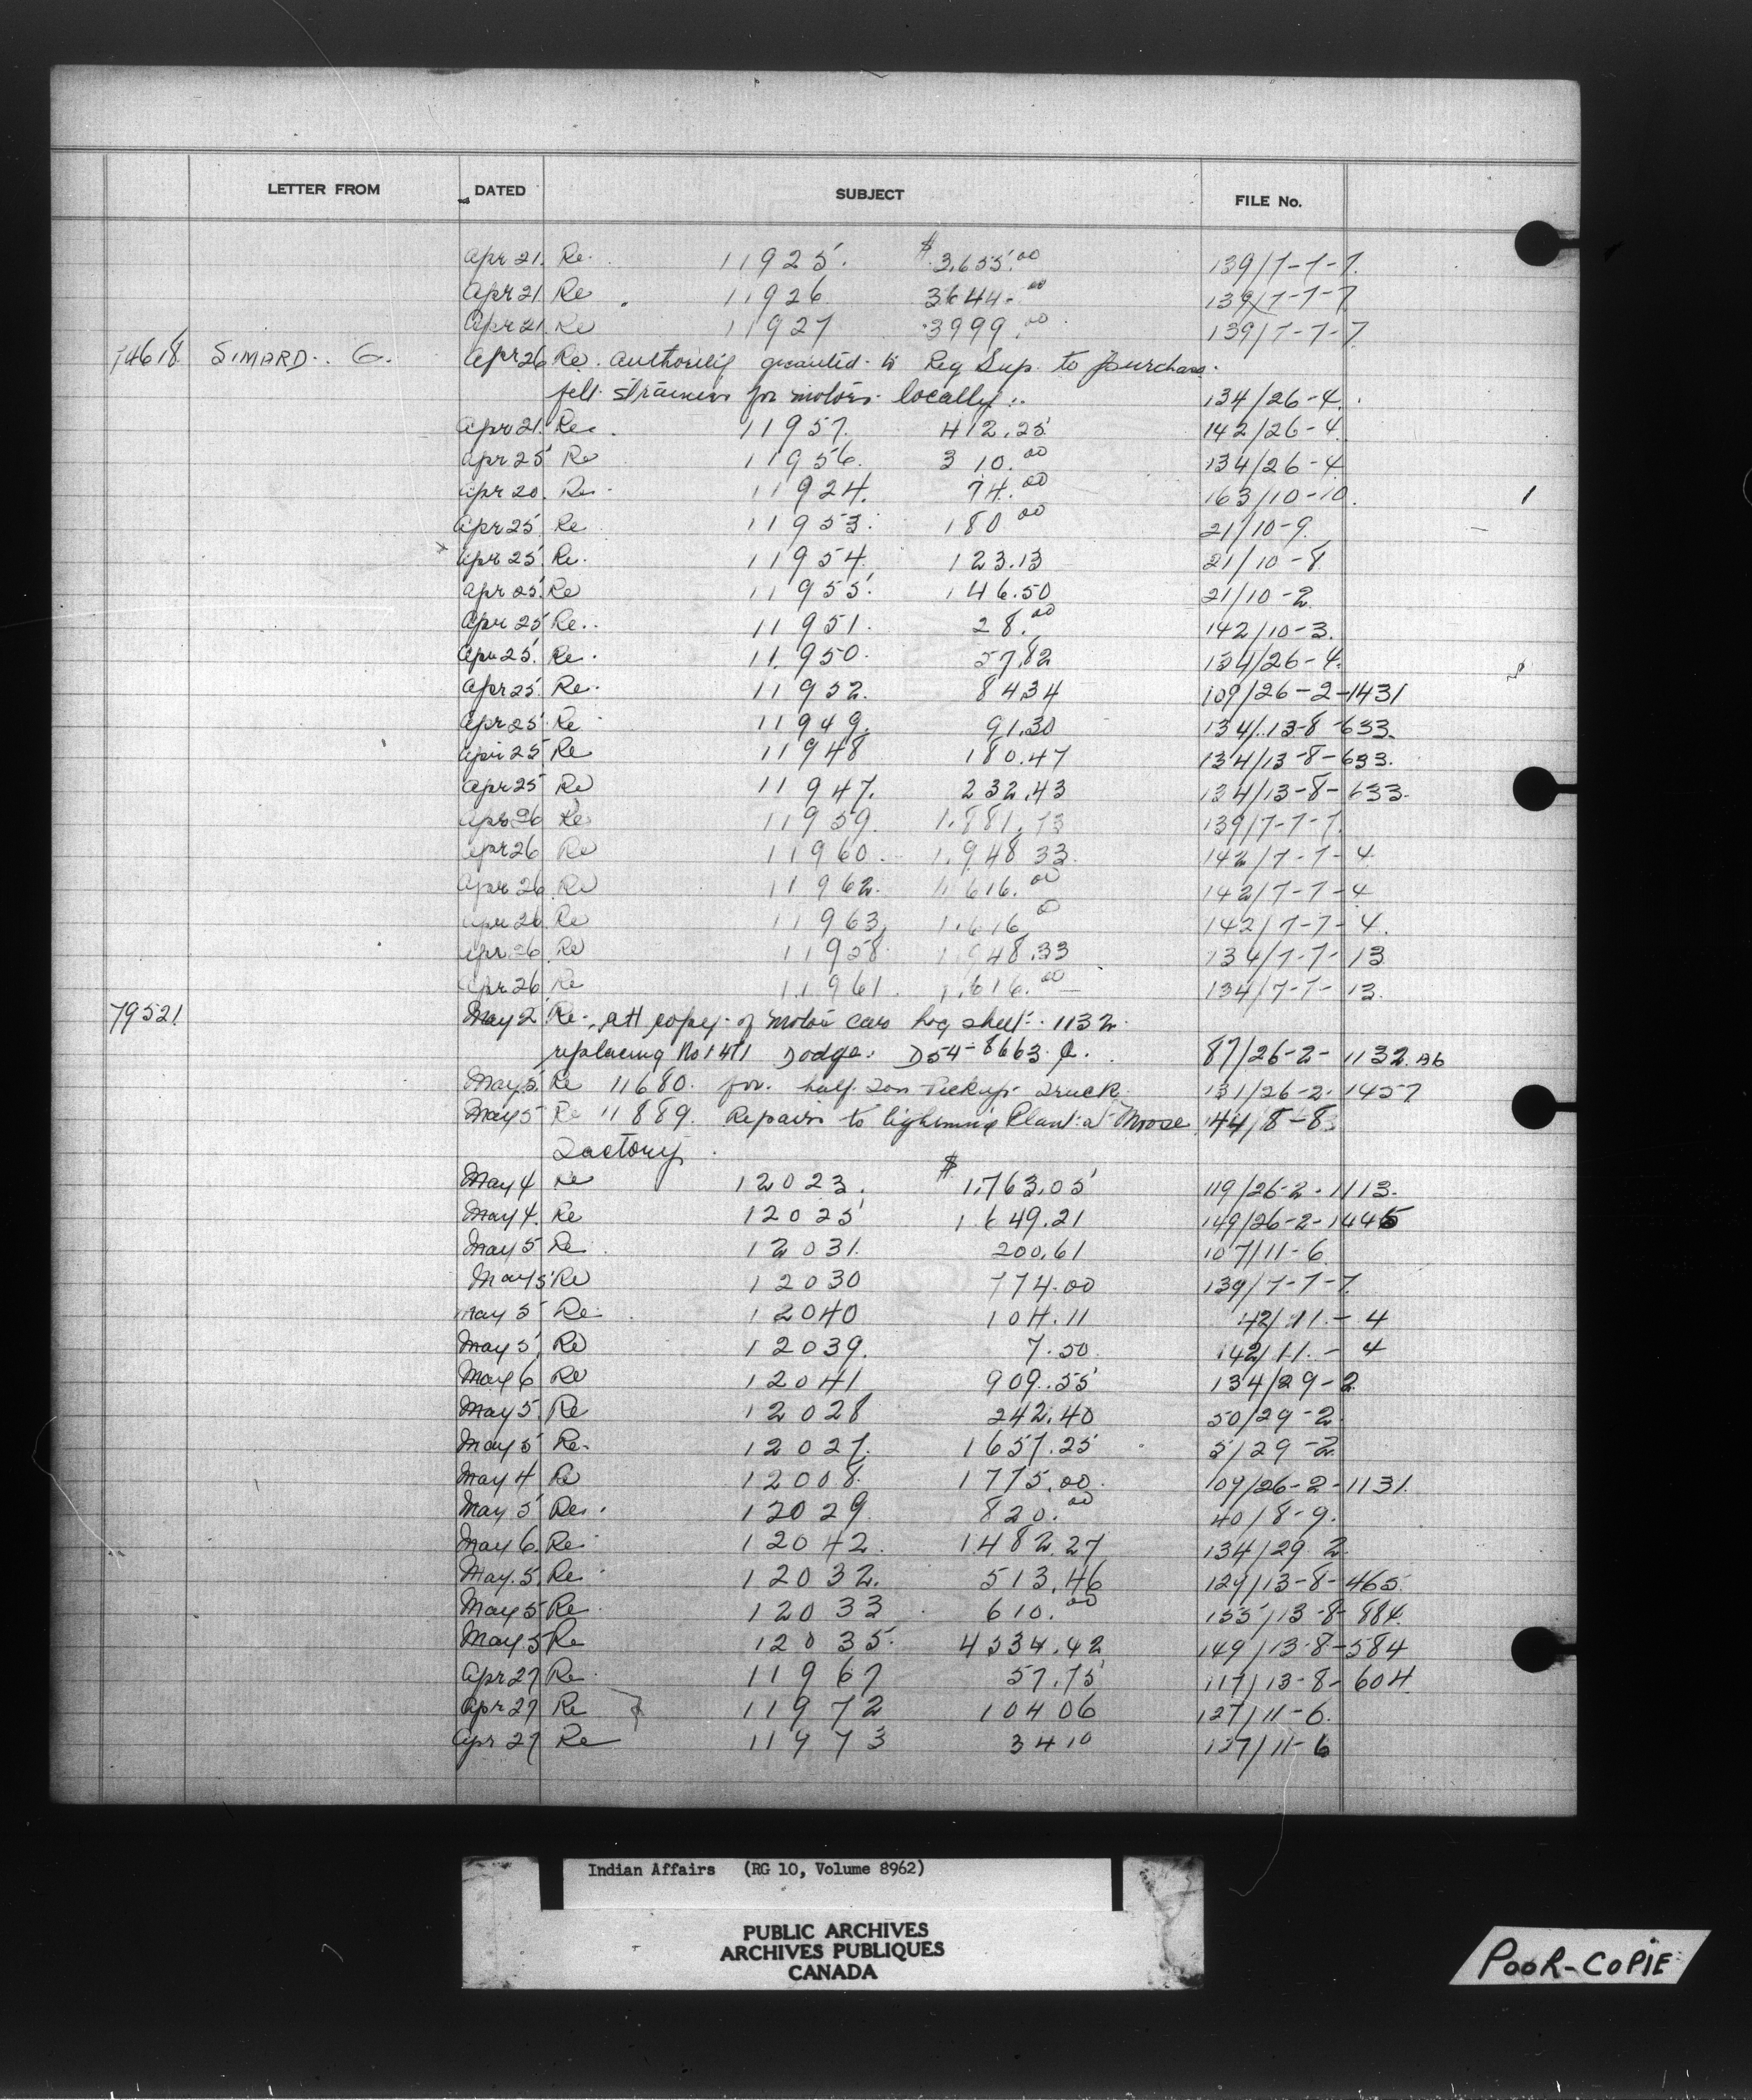 LETTER FROM DATED SUBJECT FILE No.
Apr 21. Re. 11925. $3,655.00 139/7-7-7.
Apr 21 Re 11926 3644.00 139/7-7-7
Apr 21 Re 11927 3999.00 139/7-7-7
74618 SIMARD. G. Apr 26 Re. authority granted to Reg Sup to purchase
felt strainers for motors locally. 134/26-4.
Apr 21. Re. 11957. 412.25 142/26-4
Apr 25 Re 11956. 310.00 134/26-4
Apr 20. Re. 11924. 74.00 163/10-10.
Apr 25 Re 11953. 180.00 21/10-9.
Apr 25 Re. 11954. 123.13 21/10-8
Apr 25. Re 11955. 146.50 21/10-2
Apr 25 Re.. 11951. 28.00 142/10-3.
Apr 25. Re. 11950. 57.82 134/26-4.
Apr 25. Re. 11952. 8434 109/26-2-1431
Apr 25 Re 11949. 91.30 134/13-8-633.
Apr 25 Re 11948 180.47 134/13-8-633.
Apr 25 Re 11947. 232.43 134/13-8-633.
Apr 26 Re 11959. 1,881.73 139/7-7-7.
Apr 26 Re 11960. 1,948 33. 142/7-7-4
Apr 26 Re 11962. 1,616.00 142/7-7-4
Apr 26 Re 11963, 1,616 0 142/7-7-4.
Apr 26 Re 11958. 1,948.33 134/7-7-13
Apr 26 Re 11961. 1,616.00 134/7-7-13.
79521 May 2 Re. att copy of motor car log sheet. 1132.
replacing No 1471 Dodge. D54-8663. 87/26-2-1132.
May 5. Re 11680. for half Ton Pickup Truck 131/26-2. 1457
May 5 Re 11889. Repairs to lightning Plant at Moose 44/8-8
Factory.
May 4 Re 12023. $1,763.05 119/26-2-1113.
May 4. Re 12025 1,649.21 149/26-2-1445
May 5 Re 12031. 200.61 107/11-6
May 5 Re 12030 774.00 139/7-7-7.
May 5 Re. 12040 104.11 42/11-4
May 5. Re 12039. 7.50 142/11-4
May 6 Re 12041 909.55 134/29-2
May 5. Re 12028 242.40 50/29-2.
May 5 Re. 12027. 1657.25 5/29-2
May 4 Re 12008. 1775.00. 109/26-2-1131.
May 5 Re. 12029. 820.00 40/8-9.
May 6. Re 12042. 1482.27 134/29 2
May. 5. Re 12032. 513.46 129/13-8-465.
May 5 Re 12033 610.00 155/13-8-884.
May 5 Re 12035. 4334.42 149/13-8-584
Apr 27 Re. 11967 57.75 117/13-8-604
Apr 27 Re 11972 104 06 127/11-6.
Apr 27 Re 11973 34 10 127/11-6
Indian Affairs (RG 10, Volume 8962)
PUBLIC ARCHIVES
ARCHIVES PUBLIQUES
CANADA
POOR-COPIE